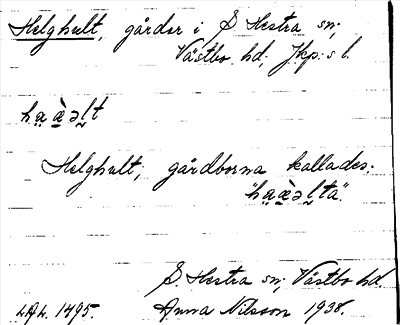 Helghult, gårdar i S Hestra sn;
Västbo hd; Jkp:s l.
ha̤æ̀əl̰t
Helghult; gårdborna kallades:
"ha̤æ̀əl̰ta".
S. Hestra sn; Västbo hd.
LAL. 1495. Anna Nilsson 1938.